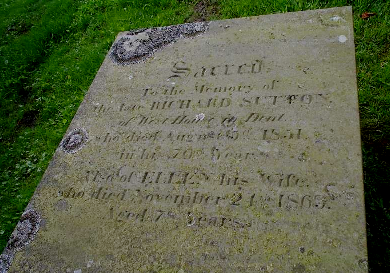 Sacred
To the Memory of
the late RICHARD SUTTO
of West House in Dent
who died August 9th 1851
in his 79th Year
Also of ELLEN his Wife
who died November 24th 1869
Aged 78 Years